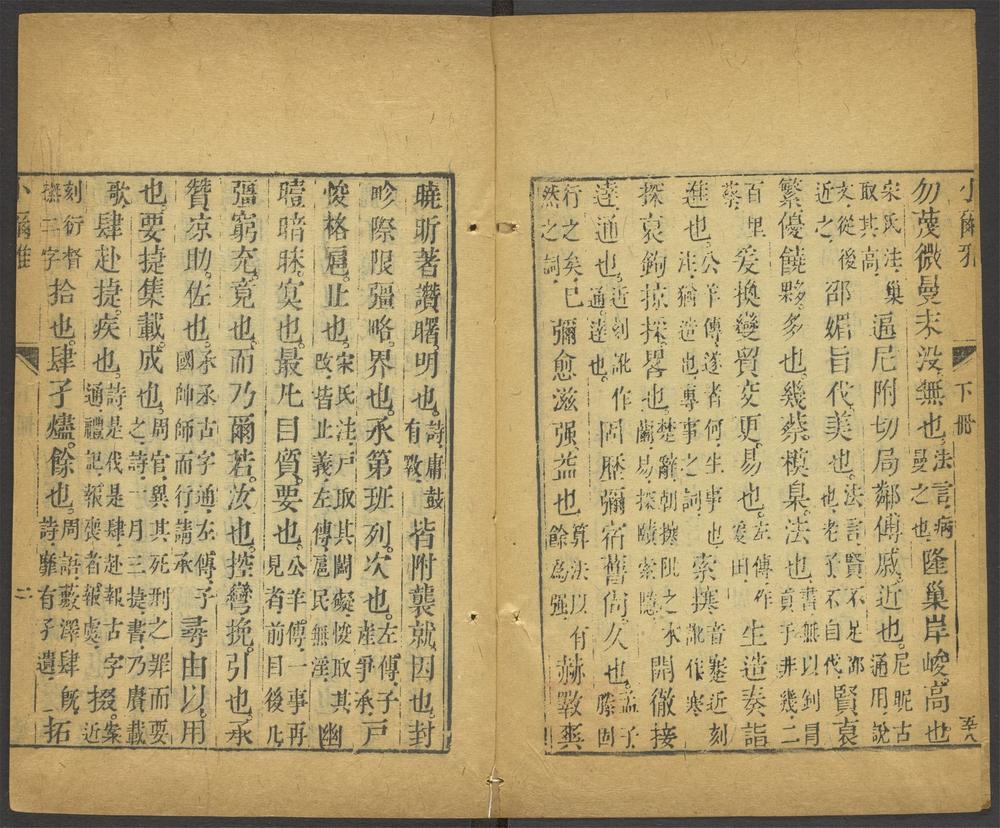 小爾雅 下冊 五八
勿茂微曼末没無也。法言病曼之也隆巢岸峻高也
宋氏注巢取其高邇尼附切局鄰傅戚近也。尼昵古通用說
文從後近之邵媚旨伐美也。法言賢不足邵也老子不自伐賢哀
繁優饒夥多也幾蔡模臬法也書無以釗冒貢于非幾二
百里蔡爰換變貿交更易也。左傳作爰田生造奏詣
進也公羊傳遂者何生事也注猶造也專事之詞索搴音蹇近刻訛作寒
探裒鉤掠採略也。楚辭朝搴阰之木蘭易探賾索隱開徹接
達通也。近刻訛作通達也固歷彌宿舊尚久也。孟子滕固
行之矣已然之詞彌愈滋强益也算法以有餘為强赫斁爽
曉昕著讚曙明也。詩庸鼓有斁皆附襲就因也封
畛際限彊略界也。承第班列次也。左傳子產爭承戶
悛格扈止也。宋氏注戶取其閫礙悛取其改皆止義左傳扈民無淫幽
曀暗昧冥也。最凡目質要也。公羊傳一事再見者前目後凡
彊窮充竟也。而乃爾若汝也。控彎挽引也。承
贊凉助佐也。承丞古字通左傳子國帥師而行請承尋由以用
也。要捷集載成也。周官異其死刑之罪而要之詩一月三捷書乃賡載
歌肆赴捷疾也。詩是伐是肆赴報古字通禮記報喪者報虞掇。案近
刻衍督撫二字拾也。肆孑燼餘也。周語藪澤肆既詩靡有孑遺拓
小爾雅 二